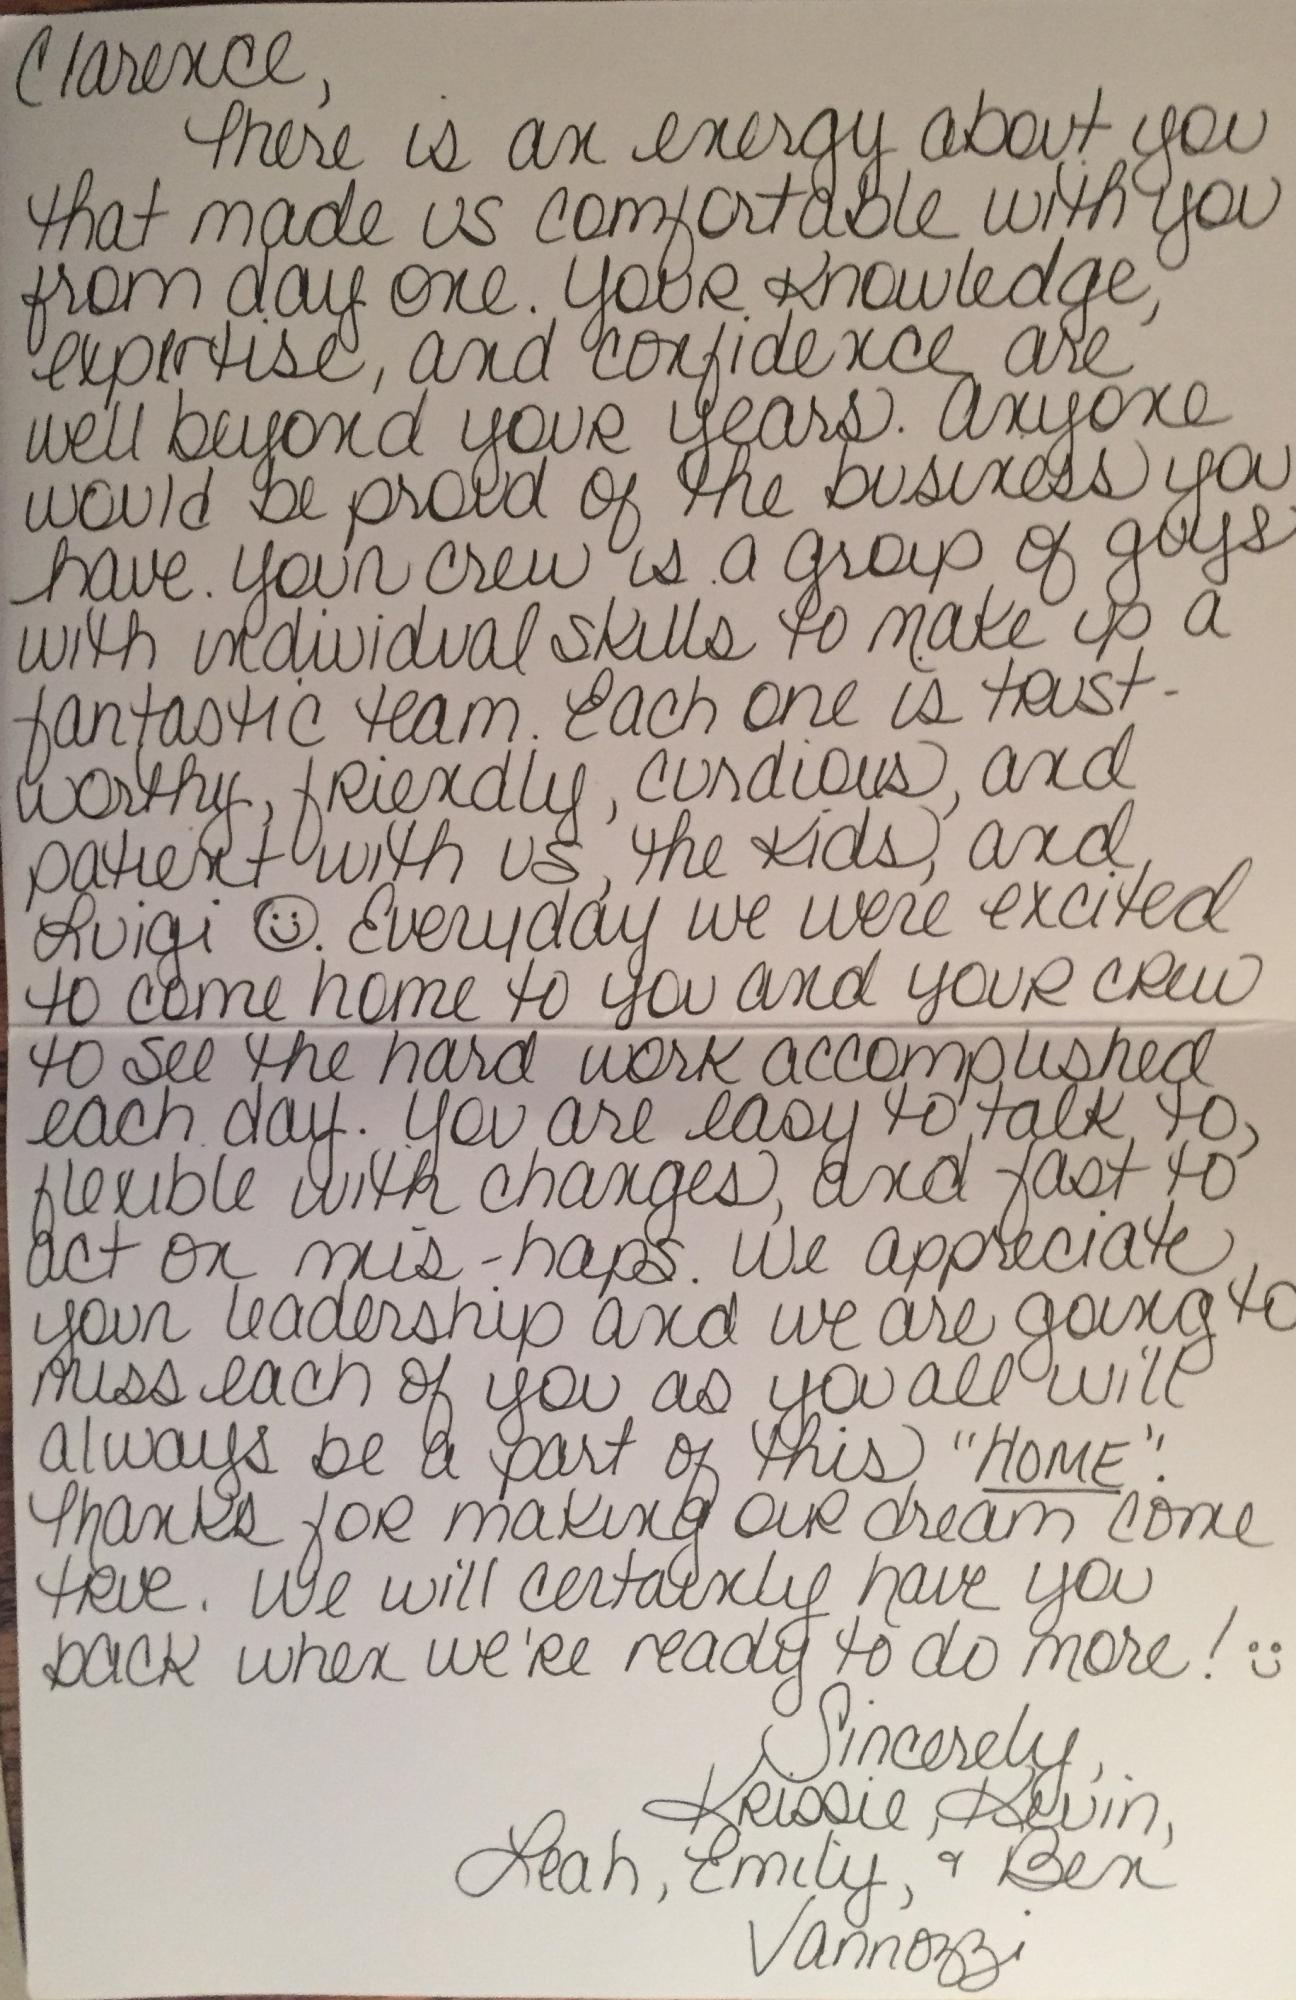 Clarence,
There is an energy about you
that made us comfortable with you
from day one. Your knowledge,
expertise, and confidence are
well beyond your years. Anyone
would be proud of the business you
have. Your crew is a group of guys
with individual skills to make up a
fantastic team. Each one is trust-
worthy, friendly, curdious, and
patient with us, the kids, and
Luigi ☺. Everyday we were excited
to come home to you and your crew
to see the hard work accomplished
each day. You are easy to talk to,
flexible with changes, and fast to
act on mis-haps. We appreciate
your leadership and we are going to
miss each of you as you all will
always be a part of this "HOME".
Thanks for making our dream come
true. We will certainly have you
back when we're ready to do more! ☺
Sincerely,
Krissie, Kevin,
Leah, Emily, & Ben
Vannozzi